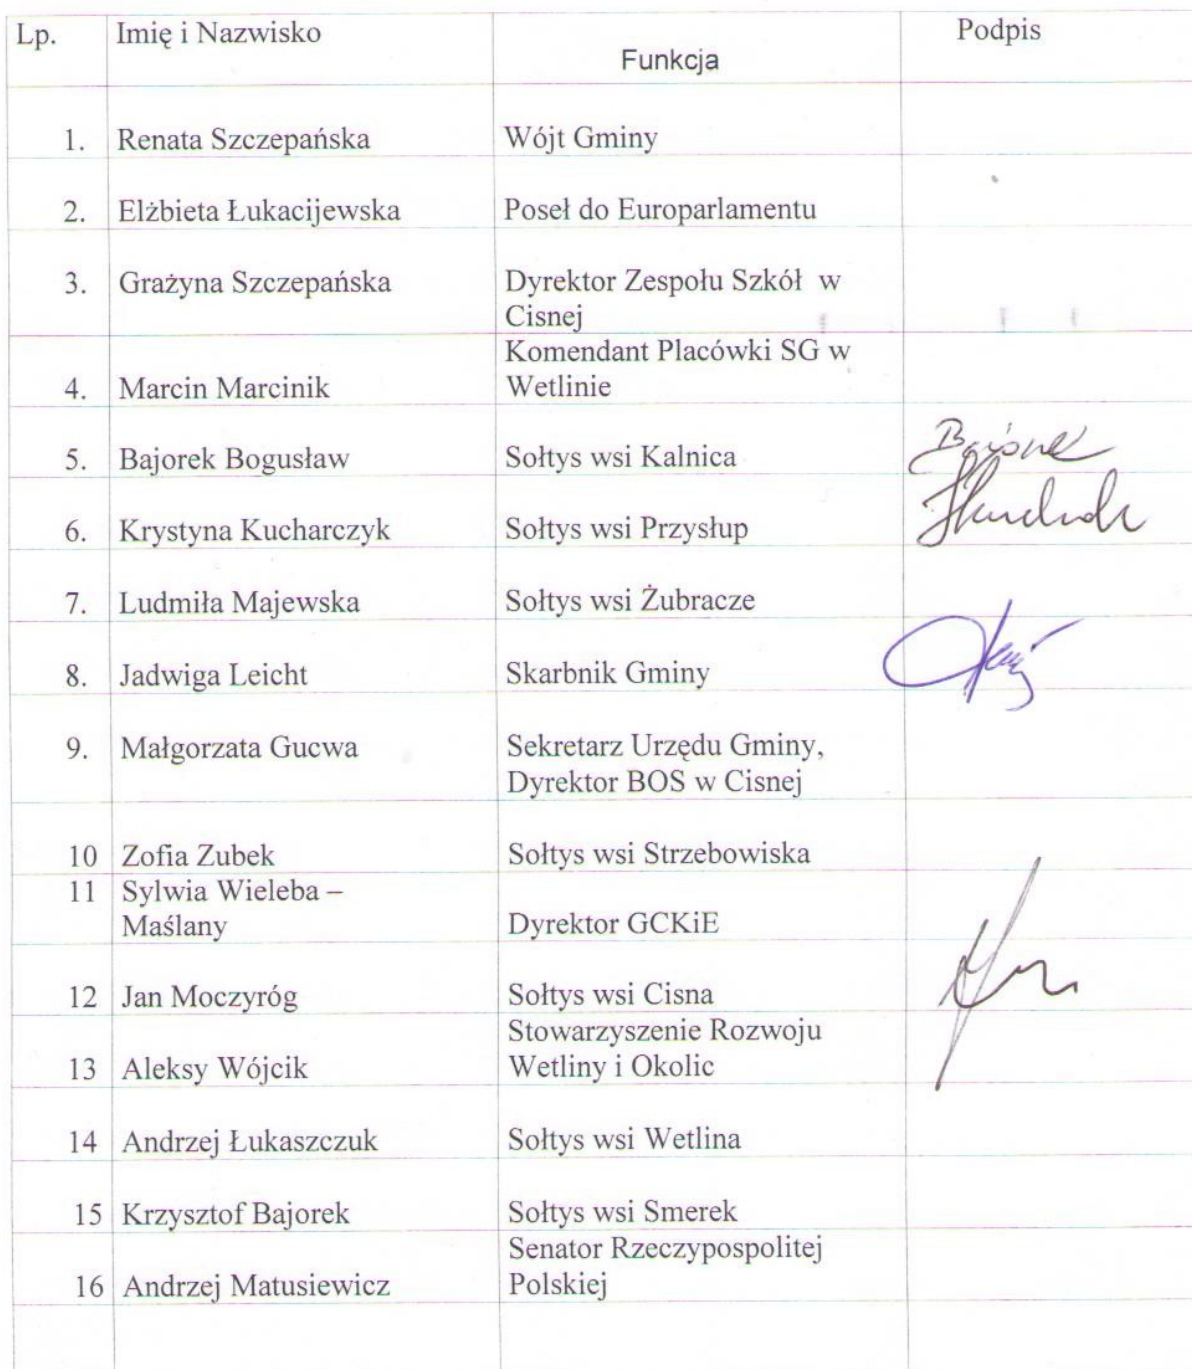 Lp. Imię i Nazwisko Funkcja Podpis
1. Renata Szczepańska Wójt Gminy
2. Elżbieta Łukacijewska Poseł do Europarlamentu
3. Grażyna Szczepańska Dyrektor Zespołu Szkół w
Cisnej
Komendant Placówki SG w
4. Marcin Marcinik Wetlinie
5. Bajorek Bogusław Sołtys wsi Kalnica
6. Krystyna Kucharczyk Sołtys wsi Przysłup
7. Ludmiła Majewska Sołtys wsi Żubracze
8. Jadwiga Leicht Skarbnik Gminy
9. Małgorzata Gucwa Sekretarz Urzędu Gminy,
Dyrektor BOS w Cisnej
10 Zofia Zubek Sołtys wsi Strzebowiska
11 Sylwia Wieleba –
Maślany Dyrektor GCKiE
12 Jan Moczyróg Sołtys wsi Cisna
Stowarzyszenie Rozwoju
13 Aleksy Wójcik Wetliny i Okolic
14 Andrzej Łukaszczuk Sołtys wsi Wetlina
15 Krzysztof Bajorek Sołtys wsi Smerek
Senator Rzeczypospolitej
16 Andrzej Matusiewicz Polskiej